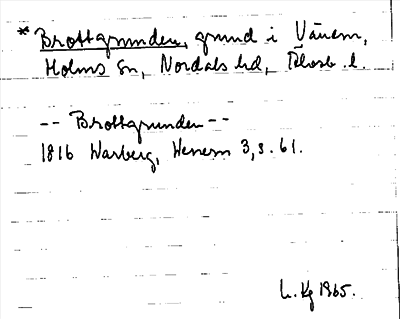 * Brottgrunden, grund i Vänern,
Holms sn, Nordals hd, Älvsb. l.
-- Brottgrunden --
1816 Warberg, Wenern 3, s. 61.
L. Kg 1965.